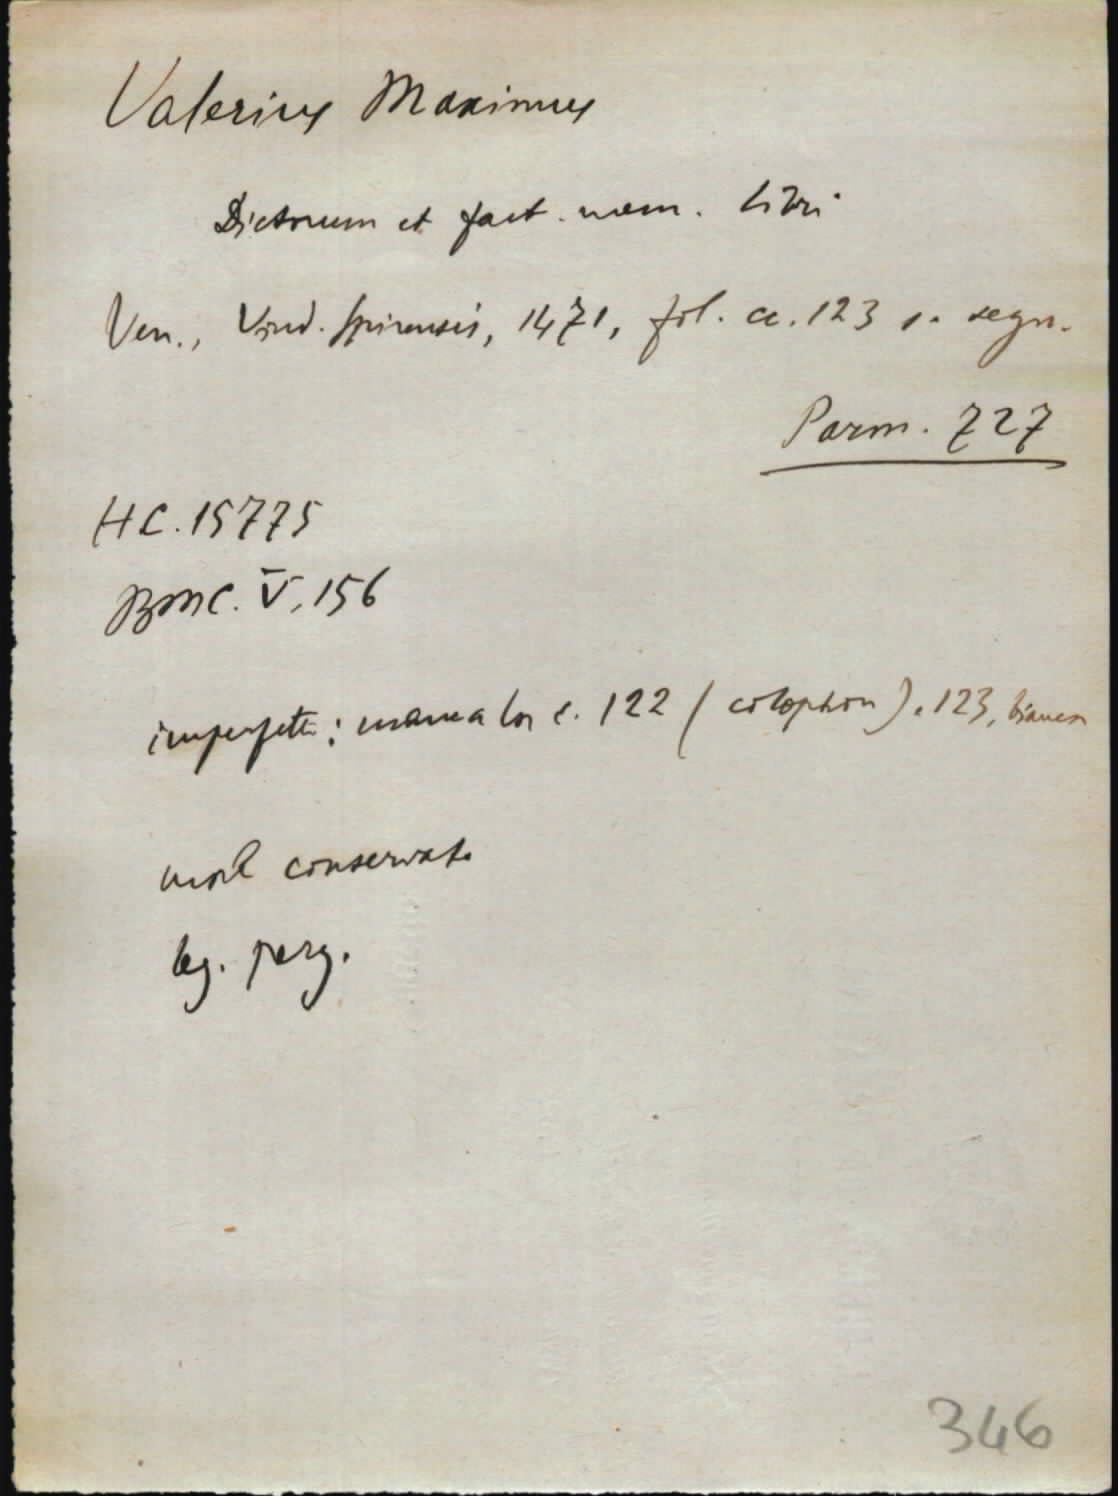 Valerius Maximus
Dictorum et fact. mem. libri
Ven., Vind. Spirensis, 1471, fol. cc. 123 s. segn.
Parm. 727
HC. 15775
BMC. V, 156
imperfetto: manca la c. 122 (colophon). 123, bianca
mal conservato
leg. perg.
346